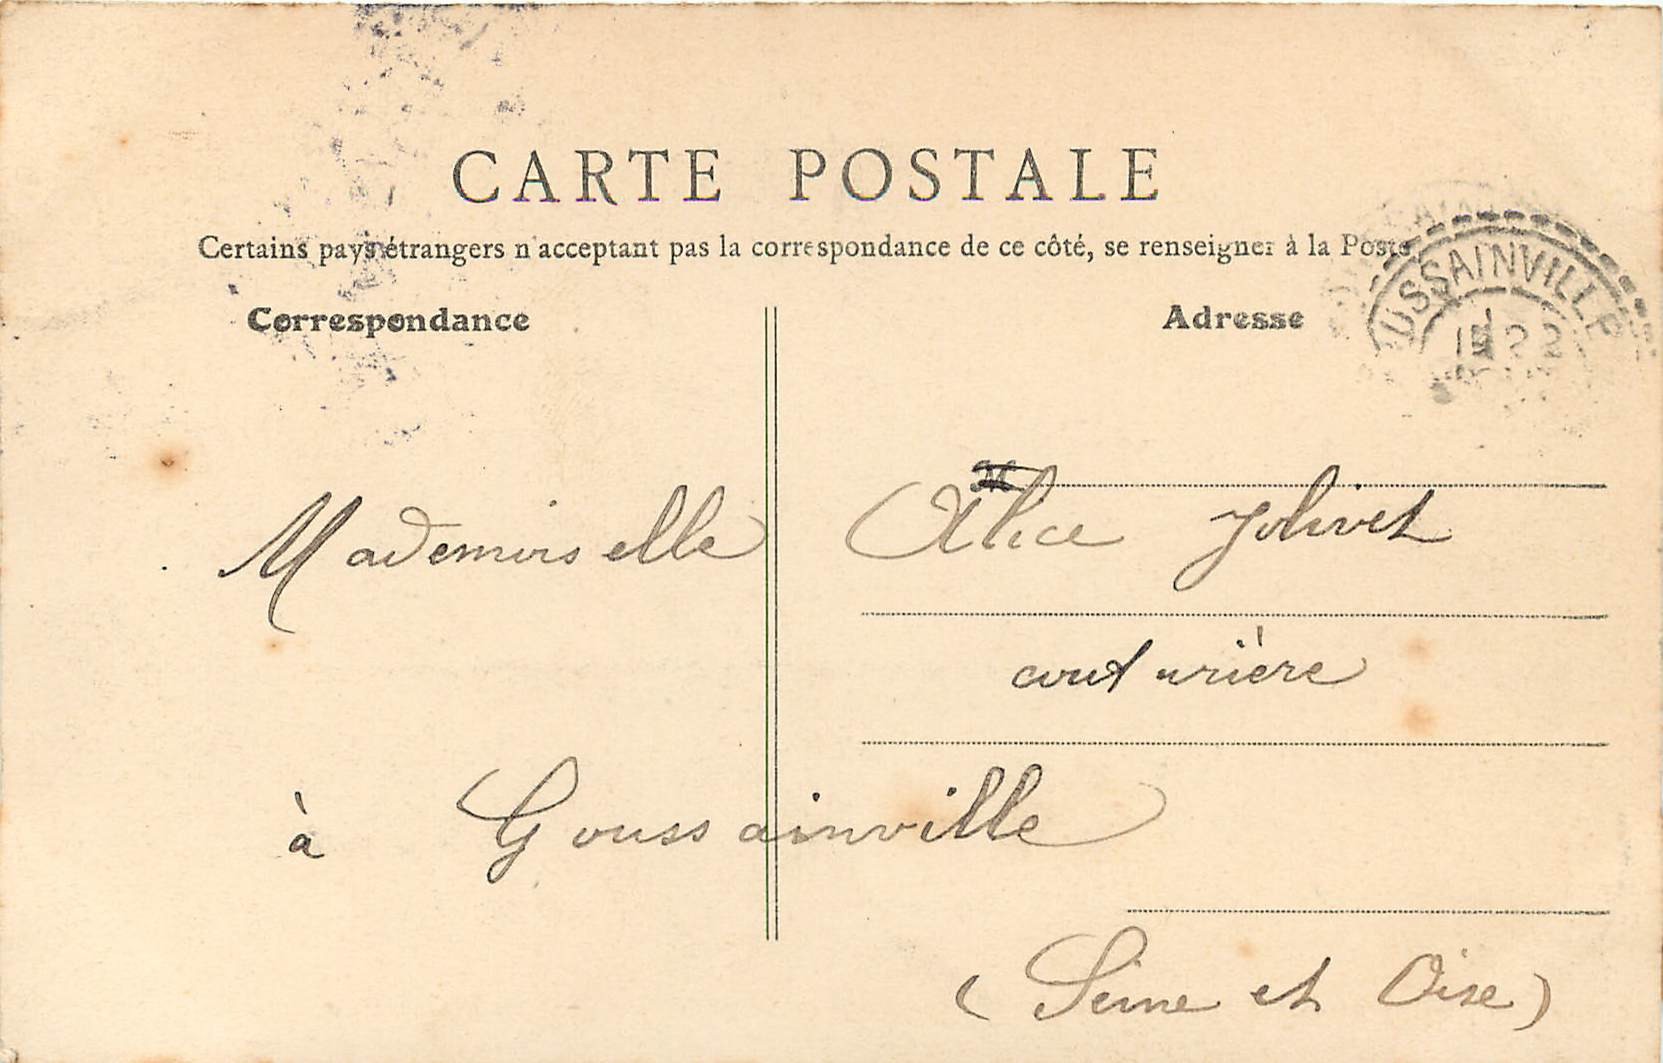 CARTE POSTALE
Certains pays étrangers n'acceptant pas la correspondance de ce côté, se renseigner à la Poste
Correspondance
Adresse
OUSSAINVILLE
Mademoiselle Alice Jolivet
couturière
à Goussainville
(Seine et Oise)